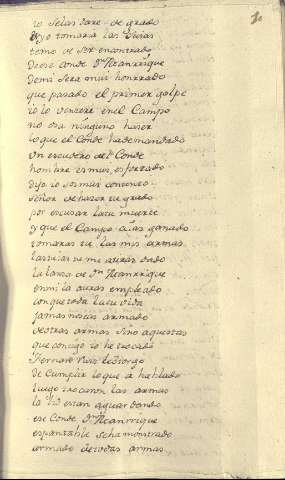 io selas dare de grado
dijo tomara las Vuias
tomo de ser encontrado
de ese conde Dn Manrrique
de mi sera mui honrrado
que pasado el primer golpe
io lo vencere en el Campo
no osa ninguno hacer
lo que el Conde ha demandado
Un escudero del Conde
hombre es mui esforzado
dijo io soi mui contento
señor de hacer tu grado
por escusar la tu muerte
y que el Campo aias ganado
tomaras tu las mis armas
las tuias me auras dado
la lanza de Dn Manrrique
en mi la auras empleado
con que toda la tu vida
jamas no seas armado
de otras armas sino aquestas
que conmigo io he trocado
Fernando Ruiz le otorgo
de Cumplir lo que a hablado
luego trocaron las armas
la lid estan aguardando
ese Conde Dn Manrrique
espantable se ha mostrado
armado de todas armas